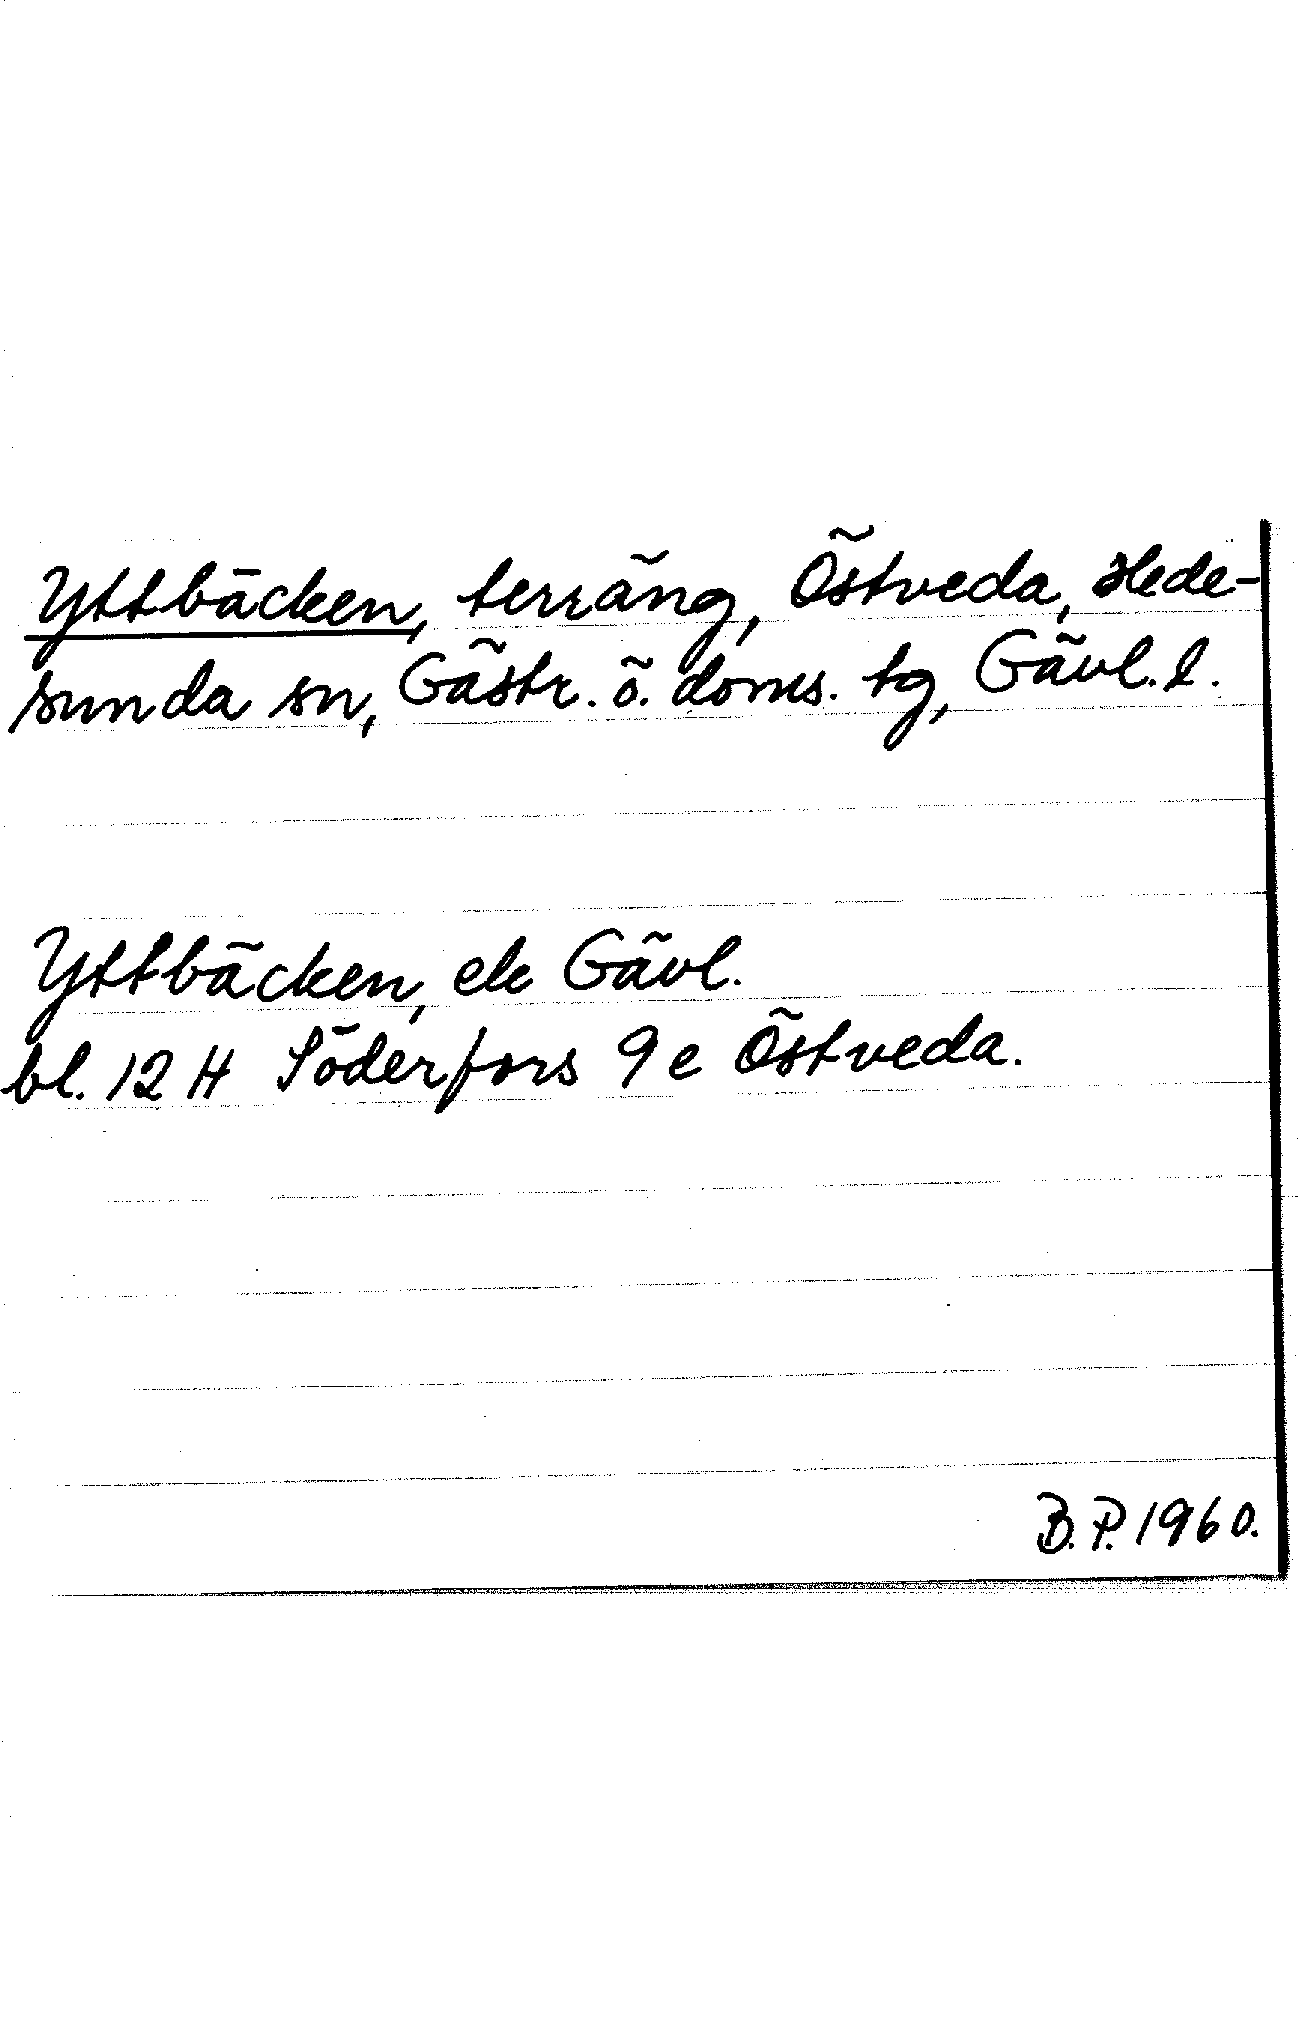 Yttbäcken, terräng, Östveda, Hede-
sunda sn, Gästr. ö. doms. tg, Gävl. l.
Yttbäcken, ek Gävl.
bl. 12 H Söderfors 9 e Östveda.
B. P. 1960.